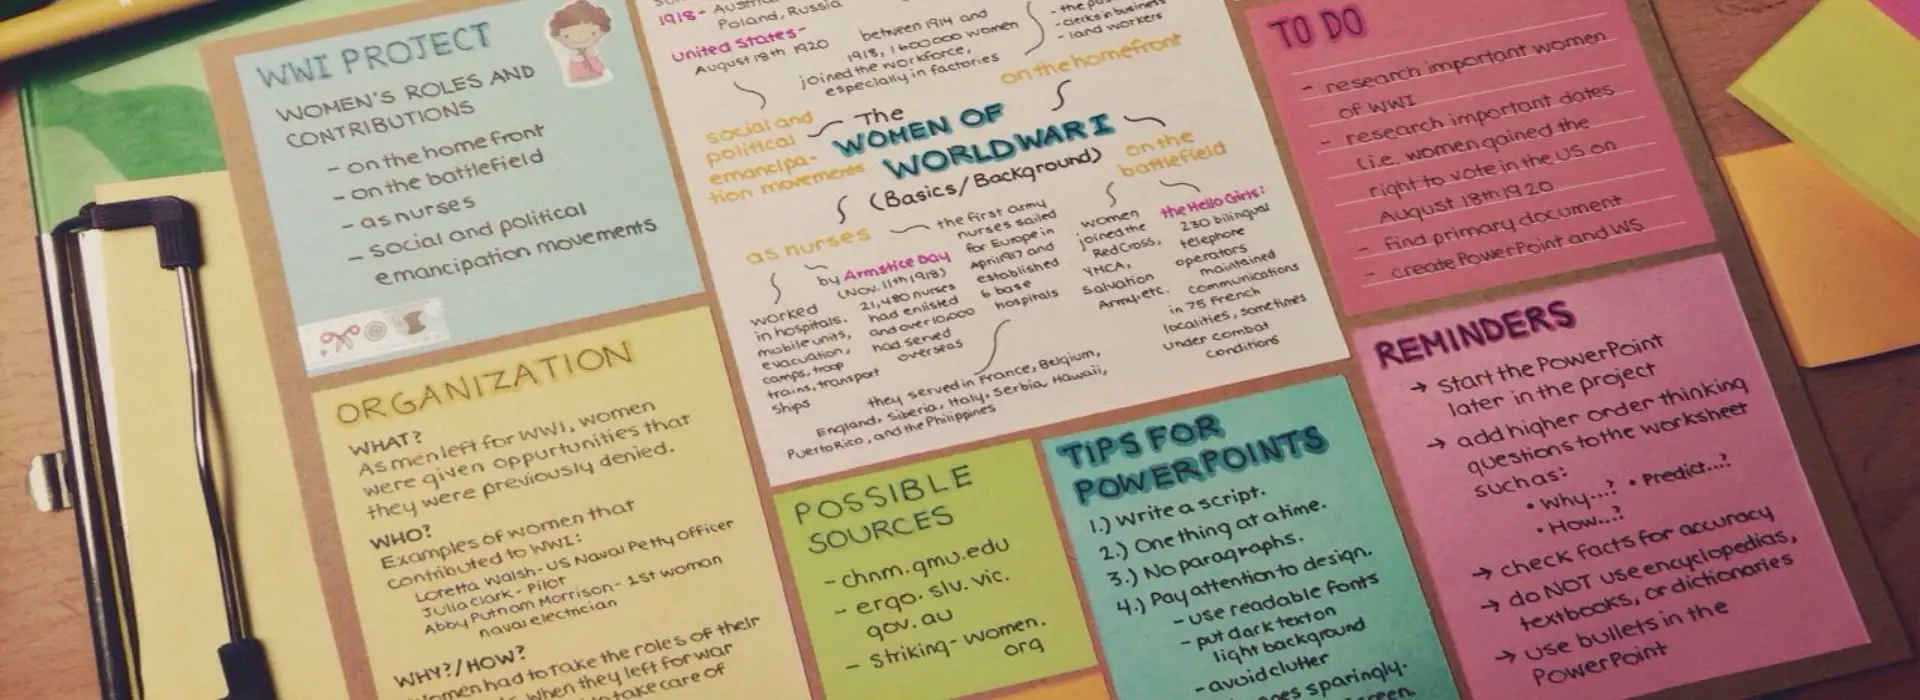 WWI PROJECT
WOMEN'S ROLES AND
CONTRIBUTIONS
- on the home front
- on the battlefield
- as nurses
- social and political
emancipation movements
ORGANIZATION
WHAT?
As men left for WWI, women
were given oppurtunities that
they were previously denied.
WHO?
Examples of women that
contributed to WWI:
Loretta Walsh - US Naval Petty Officer
Julia Clark - Pilot
Abby Putnam Morrison - 1st woman
naval electrician
WHY?/HOW?
Women had to take the roles of their
when they left for war
to take care of
1918-
Poland, Russia
United States-
August 18th 1920
between 1914 and
1918, 1600000 women
joined the workforce,
especially in factories
- clerks in business
- land workers
on the homefront
social and
political
emancipa-
tion movements
The
WOMEN OF
WORLD WAR I
(Basics/Background)
on the
battlefield
as nurses
worked
in hospitals,
mobile units,
evacuation,
camps, troop
trains, transport
ships
by Armstice Day
(Nov. 11th, 1918)
21,480 nurses
had enlisted
and over 10,000
had served
overseas
the first army
nurses sailed
for Europe in
April 1917 and
established
6 base
hospitals
they served in France, Belgium,
England, Siberia, Italy, Serbia, Hawaii,
Puerto Rico, and the Philippines
women
joined the
Red Cross,
YMCA,
Salvation
Army, etc.
the Hello Girls:
230 bilingual
telephone
operators
maintained
communications
in 75 French
localities, sometimes
under combat
conditions
POSSIBLE
SOURCES
- chnm.gmu.edu
- ergo.slv.vic.
gov.au
- Striking-women.
org
TIPS FOR
POWERPOINTS
1.) Write a script.
2.) One thing at a time.
3.) No paragraphs.
4.) Pay attention to design.
- use readable fonts
- put dark text on
light background
- avoid clutter
sparingly.
TO DO
- research important women
of WWI
- research important dates
(i.e. women gained the
right to vote in the US on
August 18th 1920
- find primary document
- create PowerPoint and WS
REMINDERS
→ start the PowerPoint
later in the project
→ add higher order thinking
questions to the worksheet
such as:
• Why...? • Predict...?
• How...?
→ check facts for accuracy
→ do NOT use encyclopedias,
textbooks, or dictionaries
→ use bullets in the
PowerPoint